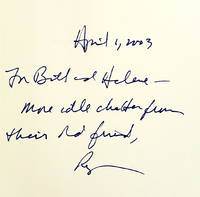 April 1, 2003
For Bill and Helene —
more idle chatter from
their old friend,